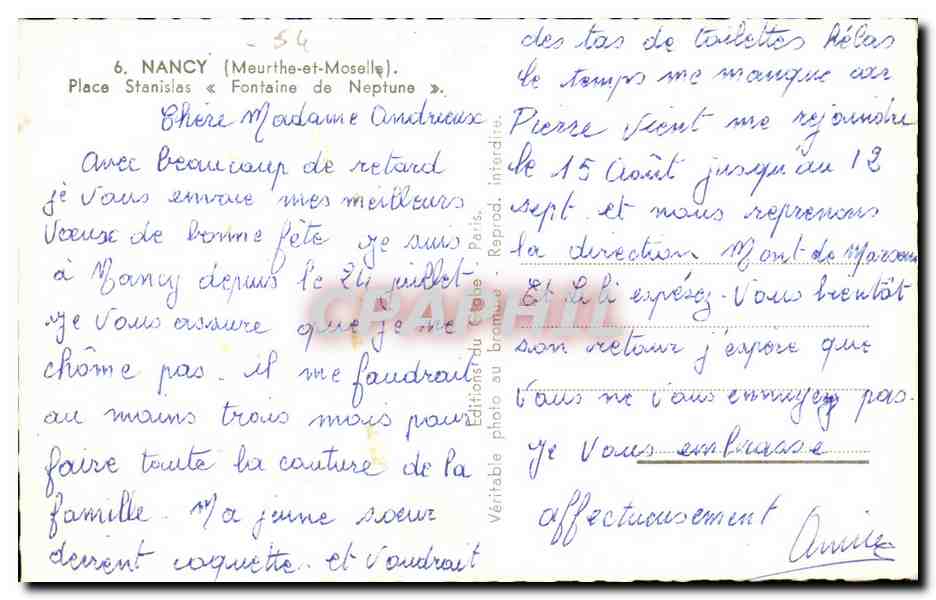 - 54
6. NANCY (Meurthe-et-Moselle).
Place Stanislas « Fontaine de Neptune ».
Chère Madame Andrieux
Avec beaucoup de retard
je vous envoie mes meilleurs
Vœux de bonne fête je suis
à Nancy depuis le 24 juillet
je vous assure que je ne
chôme pas. il me faudrait
au moins trois mois pour
faire toute la couture de la
famille. Ma jeune sœur
devient coquette et voudrait
Editions du Globe. Paris.
Véritable photo au bromure - Reprod. interdite.
des tas de toilettes Hélas
le temps me manque car
Pierre vient me rejoindre
le 15 Août jusqu'au 12
sept. et nous reprenons
la direction Mont de Marsan
Et Lili espérez-vous bientôt
son retour j'espère que
vous ne vous ennuyez pas.
Je vous embrasse
affectueusement
CPAPHIL